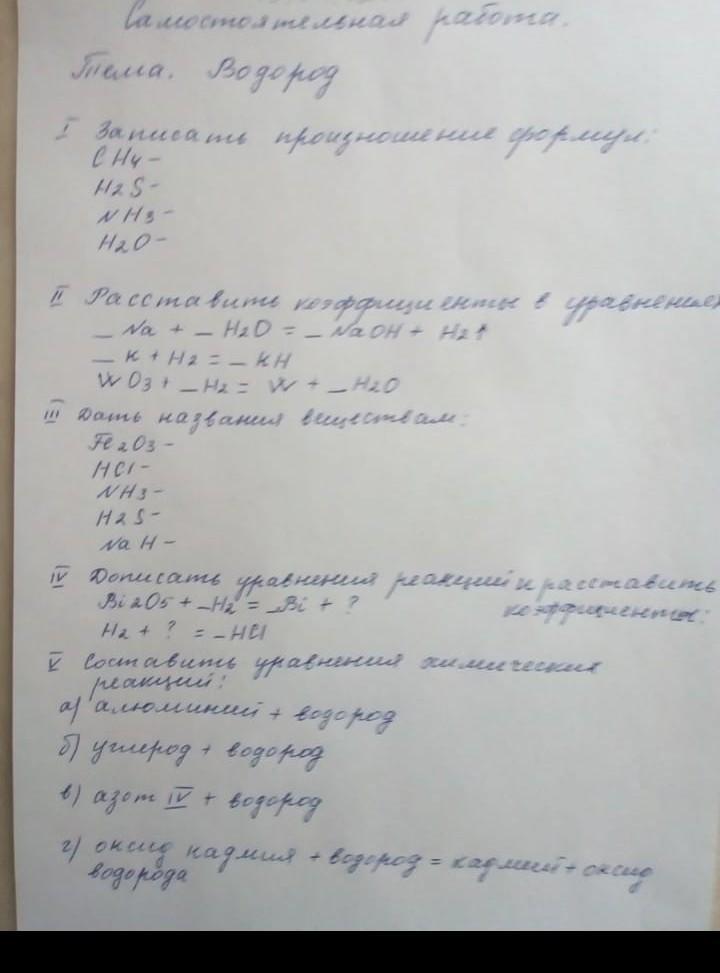 Самостоятельная работа.
Тема. Водород
I Записать произношение формул:
CH4 -
H2S -
NH3 -
H2O -
II Расставить коэффициенты в уравнениях
_ Na + _ H2O = _ NaOH + H2↑
_ K + H2 = _ KH
WO3 + _ H2 = W + _ H2O
III Дать названия веществам:
Fe2O3 -
HCl -
NH3 -
H2S -
NaH -
IV Дописать уравнения реакций и расставить
Bi2O5 + _H2 = _Bi + ? коэффициенты:
H2 + ? = _HCl
V Составить уравнения химических
реакций:
а) алюминий + водород
б) углерод + водород
в) азот IV + водород
г) оксид кадмия + водород = кадмий + оксид
водорода